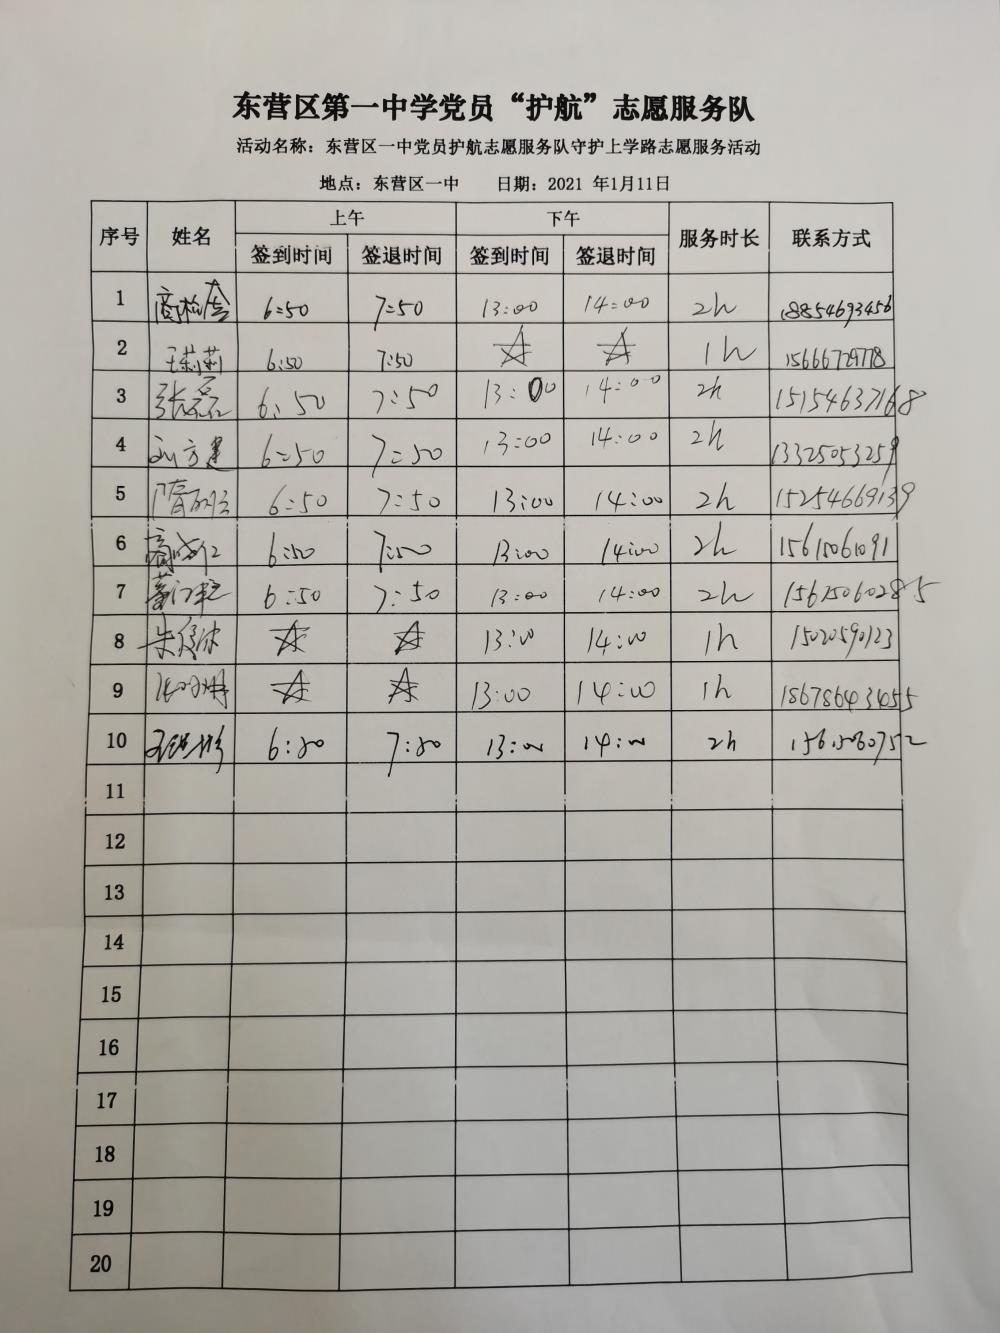 东营区第一中学党员“护航”志愿服务队
活动名称：东营区一中党员护航志愿服务队守护上学路志愿服务活动
地点：东营区一中 日期：2021 年1月11日
序号 姓名 上午 下午 服务时长 联系方式
签到时间 签退时间 签到时间 签退时间
1 6:50 7:50 13:00 14:00 2h 18854693456
2 王莉莉 6:50 7:50 ☆ ☆ 1h 15666729778
3 张磊 6:50 7:50 13:00 14:00 2h 15154637168
4 刘方建 6:50 7:50 13:00 14:00 2h 13325053259
5 6:50 7:50 13:00 14:00 2h 15254669139
6 6:50 7:50 13:00 14:00 2h 15615061091
7 6:50 7:50 13:00 14:00 2h
8 ☆ ☆ 13:00 14:00 1h
9 ☆ ☆ 13:00 14:00 1h
10 6:50 7:50 13:00 14:00 2h
11
12
13
14
15
16
17
18
19
20